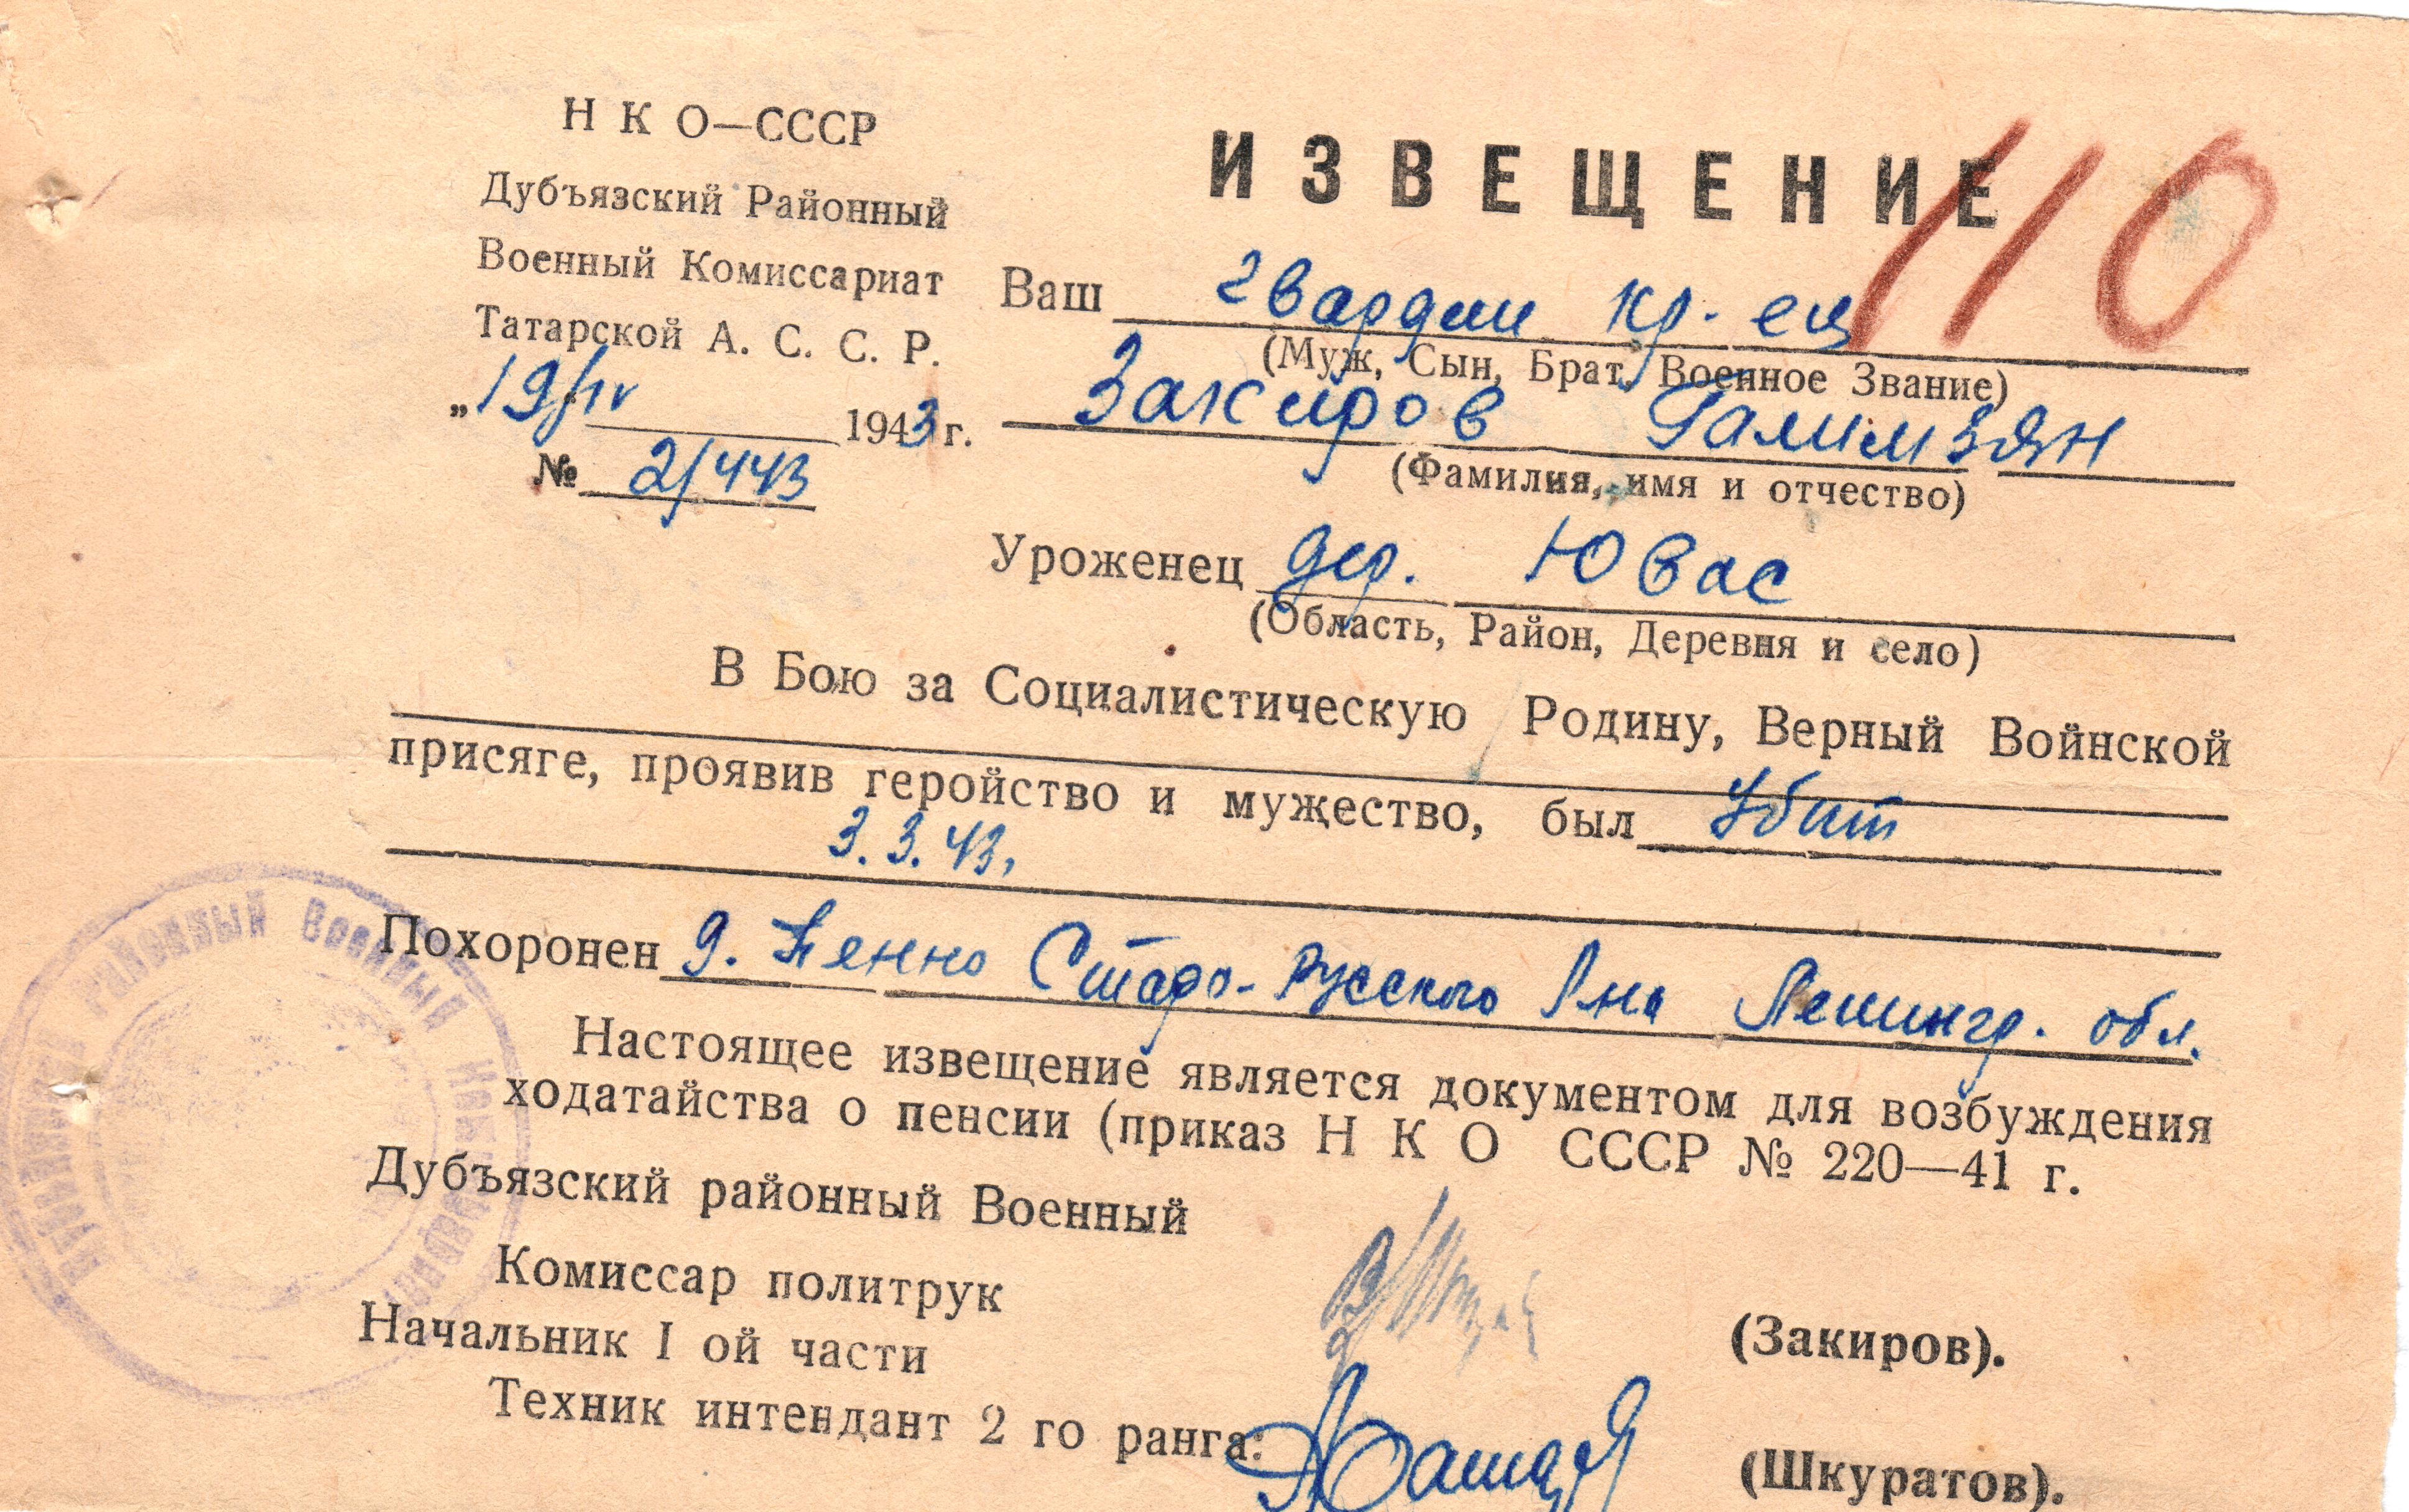 Н К О—СССР
Дубъязский Районный
Военный Комиссариат
Татарской А. С. С. Р.
„19/IV 1943 г.
№ 2/443
ИЗВЕЩЕНИЕ
110
Ваш гвардии кр-ец
(Муж, Сын, Брат, Военное Звание)
Закиров Галимзян
(Фамилия, имя и отчество)
Уроженец дер. Ювас
(Область, Район, Деревня и село)
В Бою за Социалистическую Родину, Верный Войнской
присяге, проявив геройство и мужество, был Убит
3.3.43,
Похоронен д. Пенно Старо-Русского Рна Ленингр. обл.
Настоящее извещение является документом для возбуждения
ходатайства о пенсии (приказ Н К О СССР № 220—41 г.
Дубъязский районный Военный
Комиссар политрук
(Закиров).
Начальник I ой части
Техник интендант 2 го ранга:
(Шкуратов).
Районный Военный